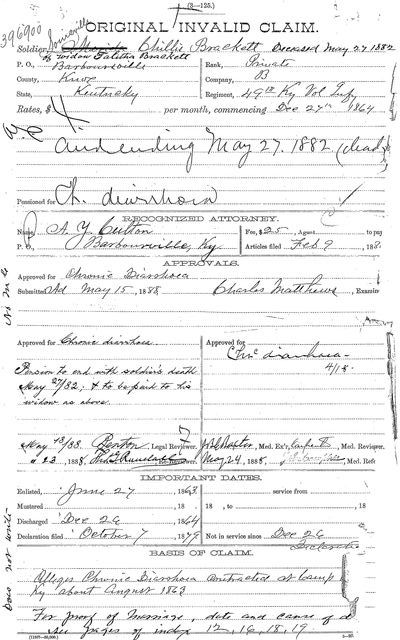 (3—125.)
396900
ORIGINAL INVALID CLAIM.
Soldier, Chillis Brackett Deceased May 27 1882
of widow Talitha Brackett
P. O., Barboursville Rank, Private
County, Knox Company, B
State, Kentucky Regiment, 49th Ky Vol Inf
Rates, $ 4 per month, commencing Dec 27th 1864
And ending May 27, 1882 (dead)
Pensioned for Ch. diarrhoea
RECOGNIZED ATTORNEY.
Name, Fee, $25, Agent to pay
P. O., Barboursville, Ky. Articles filed Feb 9, 188
APPROVALS.
Approved for Chronic Diarrhoea
Submitted Ad May 15, 1888, Charles Matthews, Examin
Approved for Chronic diarrhoea. Approved for
Chr'c diarrhoea
Pension to end with soldier's death 4/18
May 27/82. & to be paid to his
widow as above.
May 18/88. Benton, Legal Reviewer. Med. Ex'r, Med. Reviewer.
" 23, 1888, Reviewer. May 24, 1888, Med. Refe
IMPORTANT DATES.
Enlisted, June 27 1863 service from
Mustered 18 18 , to , 18
Discharged Dec 26 1864
Declaration filed October 7 1879 Not in service since Dec 26
BASIS OF CLAIM.
Alleges Chronic Diarrhoea contracted at Camp
Ky about August 1863
For proof of Marriage, date and cause of d
see pages of index 12, 16, 18, 19
Does not write